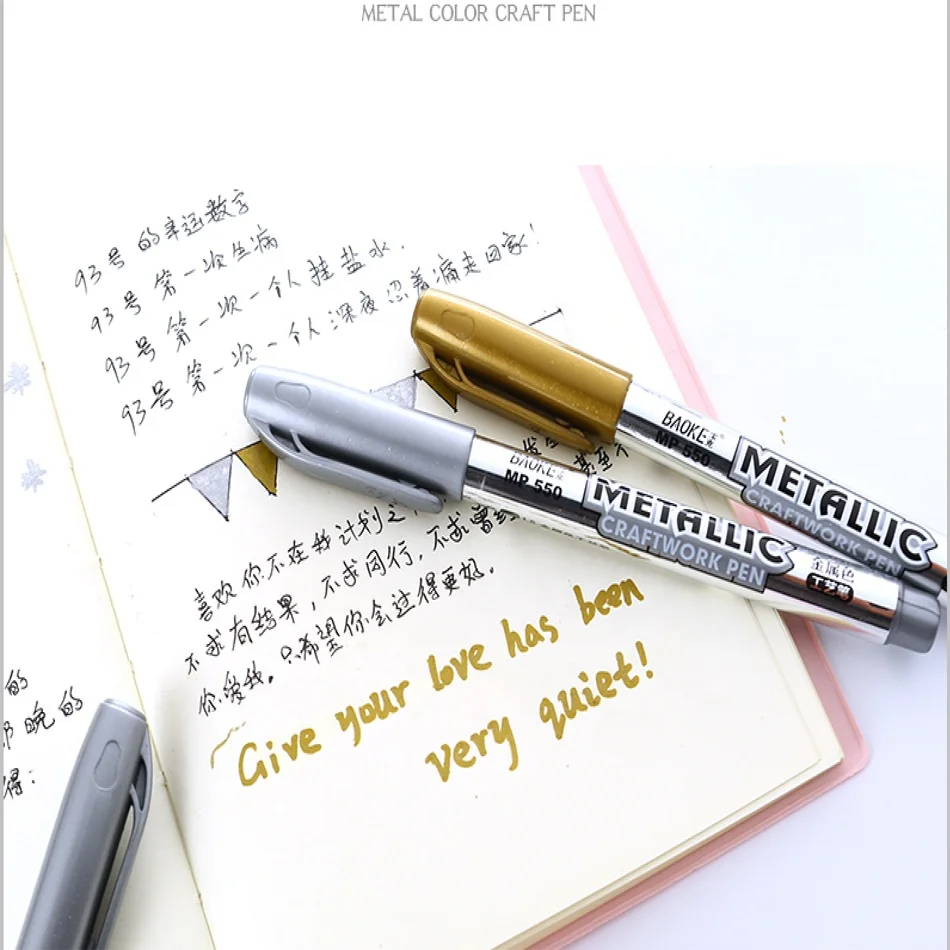 METAL COLOR CRAFT PEN
93号的幸运数字
93号 第一次生病
93号 第一次一个人挂盐水.
93号 第一次一个人深夜忍着痛走回家!
BAOKE
MP 550
METALLIC
CRAFTWORK PEN
BAOKE
MP 550
METALLIC
CRAFTWORK PEN
金属色
工艺笔
喜欢你不在我计划之
不求有结果，不求同行，不求曾经
你爱我。只希望你会过得更好。
Give your love has been
very quiet!
的
晚的
得: